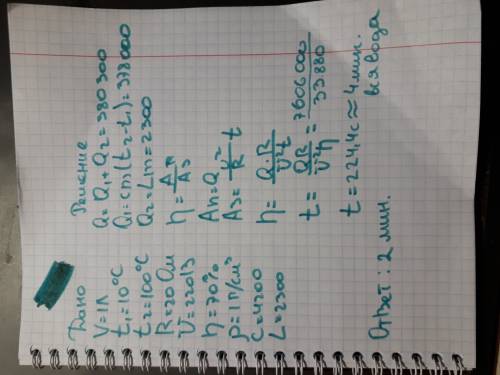 Дано
V=1л
t₁=10°C
t₂=100°C
R=20 Ом
U=220В
η=70%
ρ=1г/см³
C=4200
L=2300
Решение
Q=Q₁+Q₂=380300
Q₁=cm(t₂-t₁)=378000
Q₂=Lm=2300
η=Aп/Aз
Aп=Q
Aз=U²/R t
η=Q·R/U²t
t=QR/U²η=7606000/33880
t=224,4с≈4 мин.
вся вода
Ответ: 2 мин.